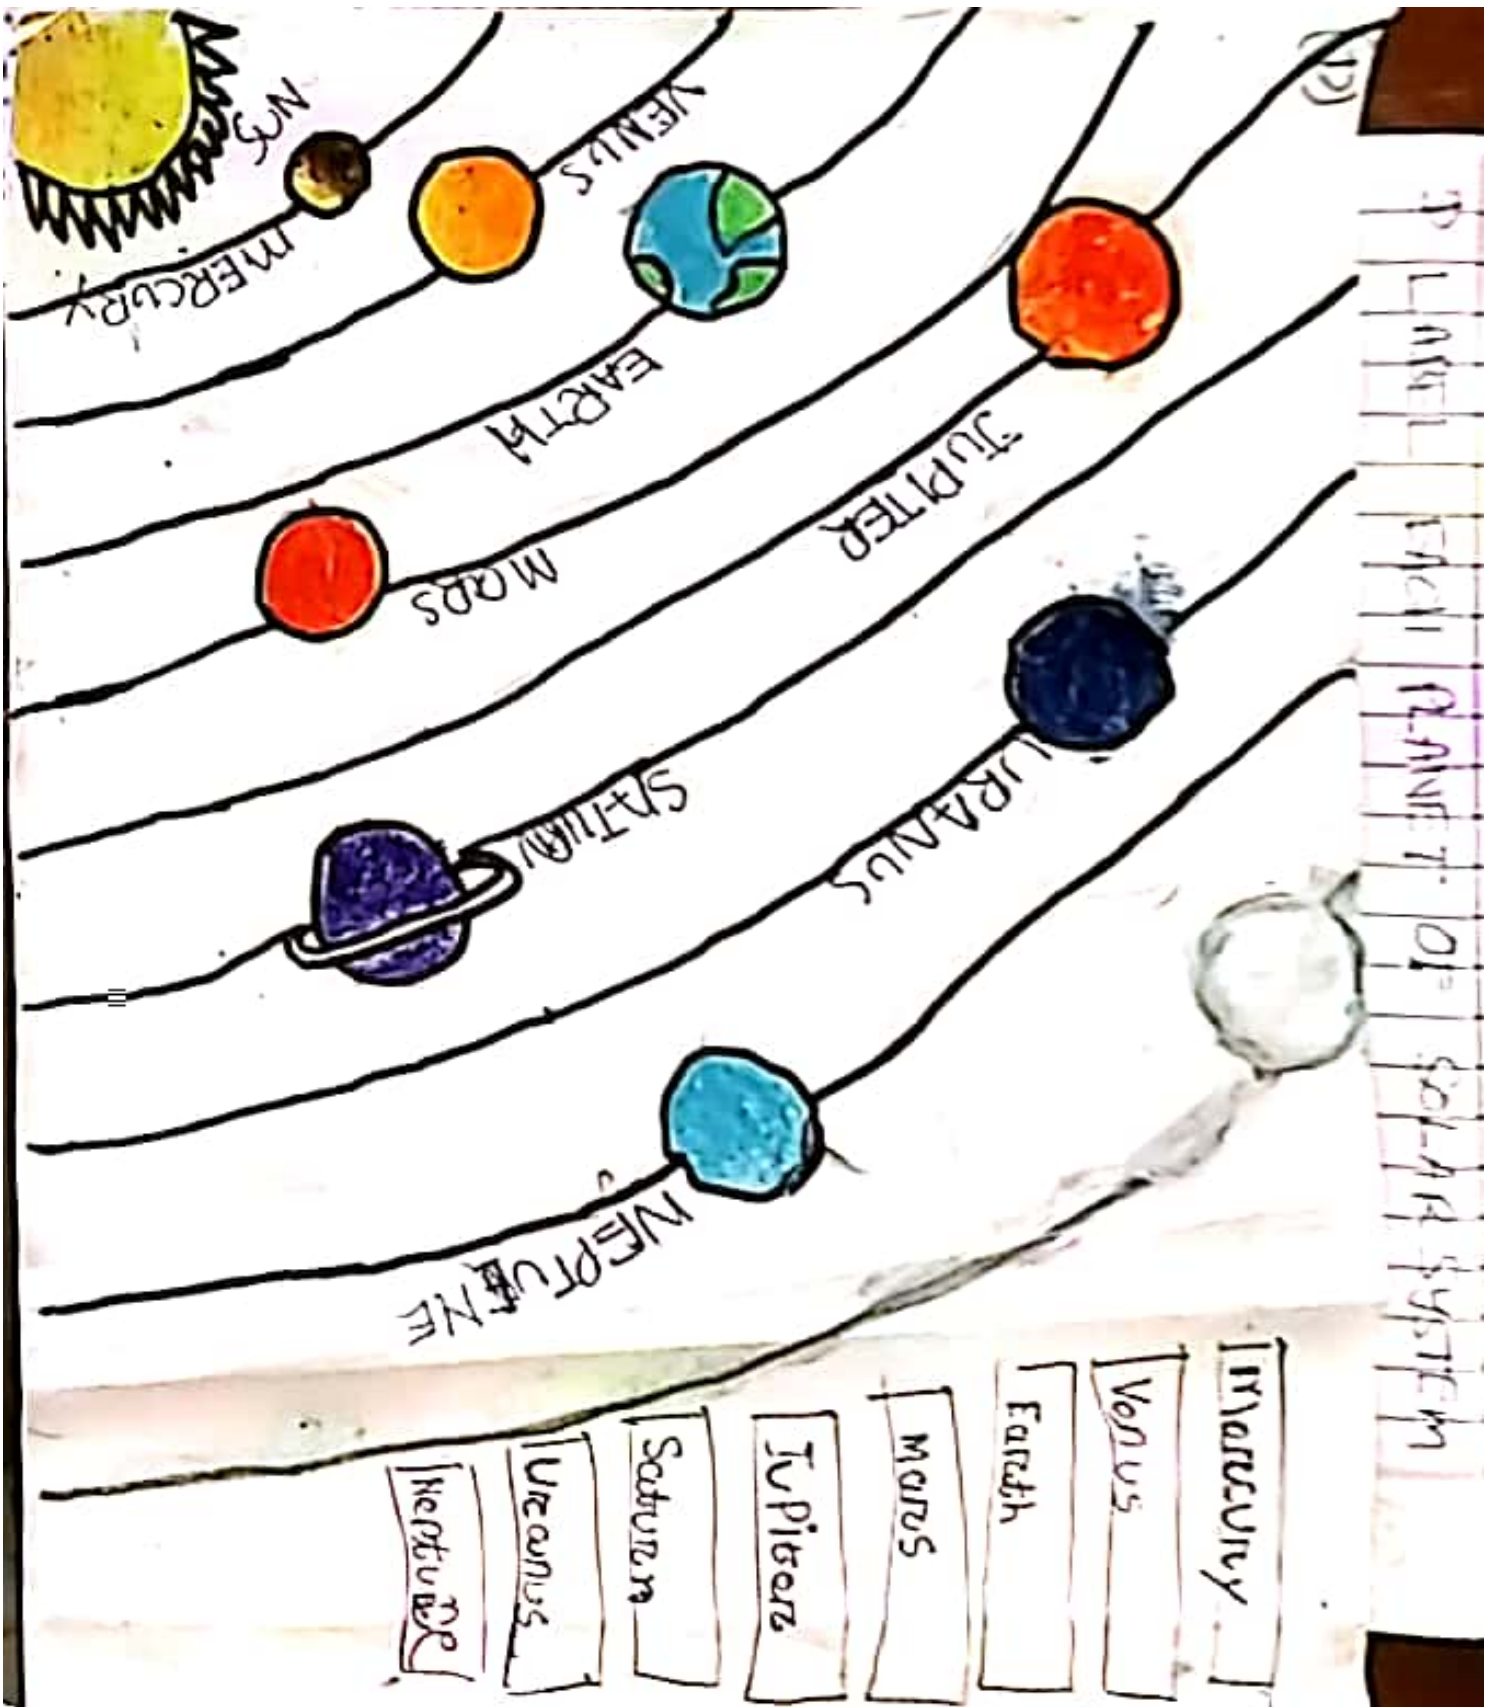 LABEL EACH PLANET OF SOLAR SYSTEM
SUN
MERCURY
VENUS
EARTH
MARS
JUPITER
SATURN
URANUS
NEPTUNE
Mercury
Venus
Earth
Mars
Jupiter
Saturn
Uranus
Neptune